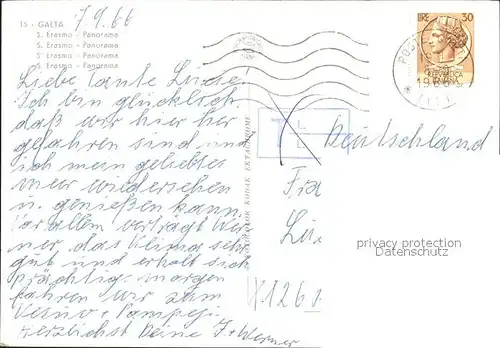 15 - GAETA
7.9.66
S. Erasmo - Panorama
S. Erasmo - Panorama
S. Erasmo - Panorama
S. Erasmo - Panorama
LIRE 30
Liebe Tante
Ich bin glücklich
daß wir hier her
gefahren sind und
ich mein geliebtes
Meer wiedersehen
u. genießen kann.
Vor allem verträgt Wer
ner das Klima sehr
gut und erholt sich
prächtig. Morgen
fahren wir zum
Vesuv + Pompeji
Herzlichst Deine J + Werner
T L
L
KODAK EKTACHROME
Deutschland
Fra
privacy protection
Datenschutz